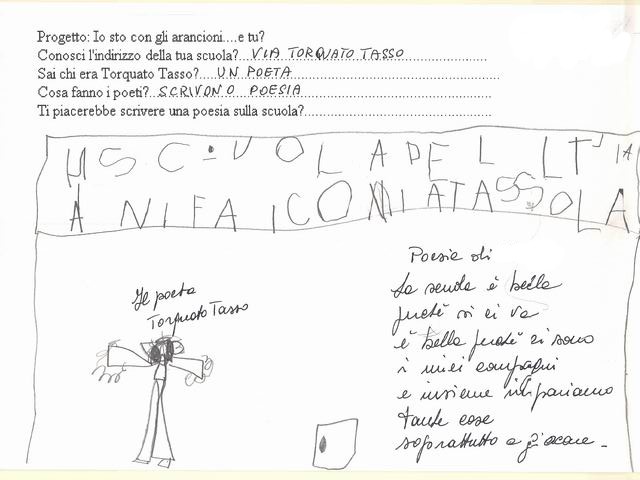 Progetto: Io sto con gli arancioni....e tu?
Conosci l'indirizzo della tua scuola?...VIA TORQUATO TASSO
Sai chi era Torquato Tasso?....UN POETA
Cosa fanno i poeti?..SCRIVONO POESIA
Ti piacerebbe scrivere una poesia sulla scuola?
Poesia di
La scuola è bella
perché ci si va
è bella perché ci sono
i miei compagni
e insieme impariamo
tante cose
soprattutto a giocare -
Il poeta
Torquato Tasso